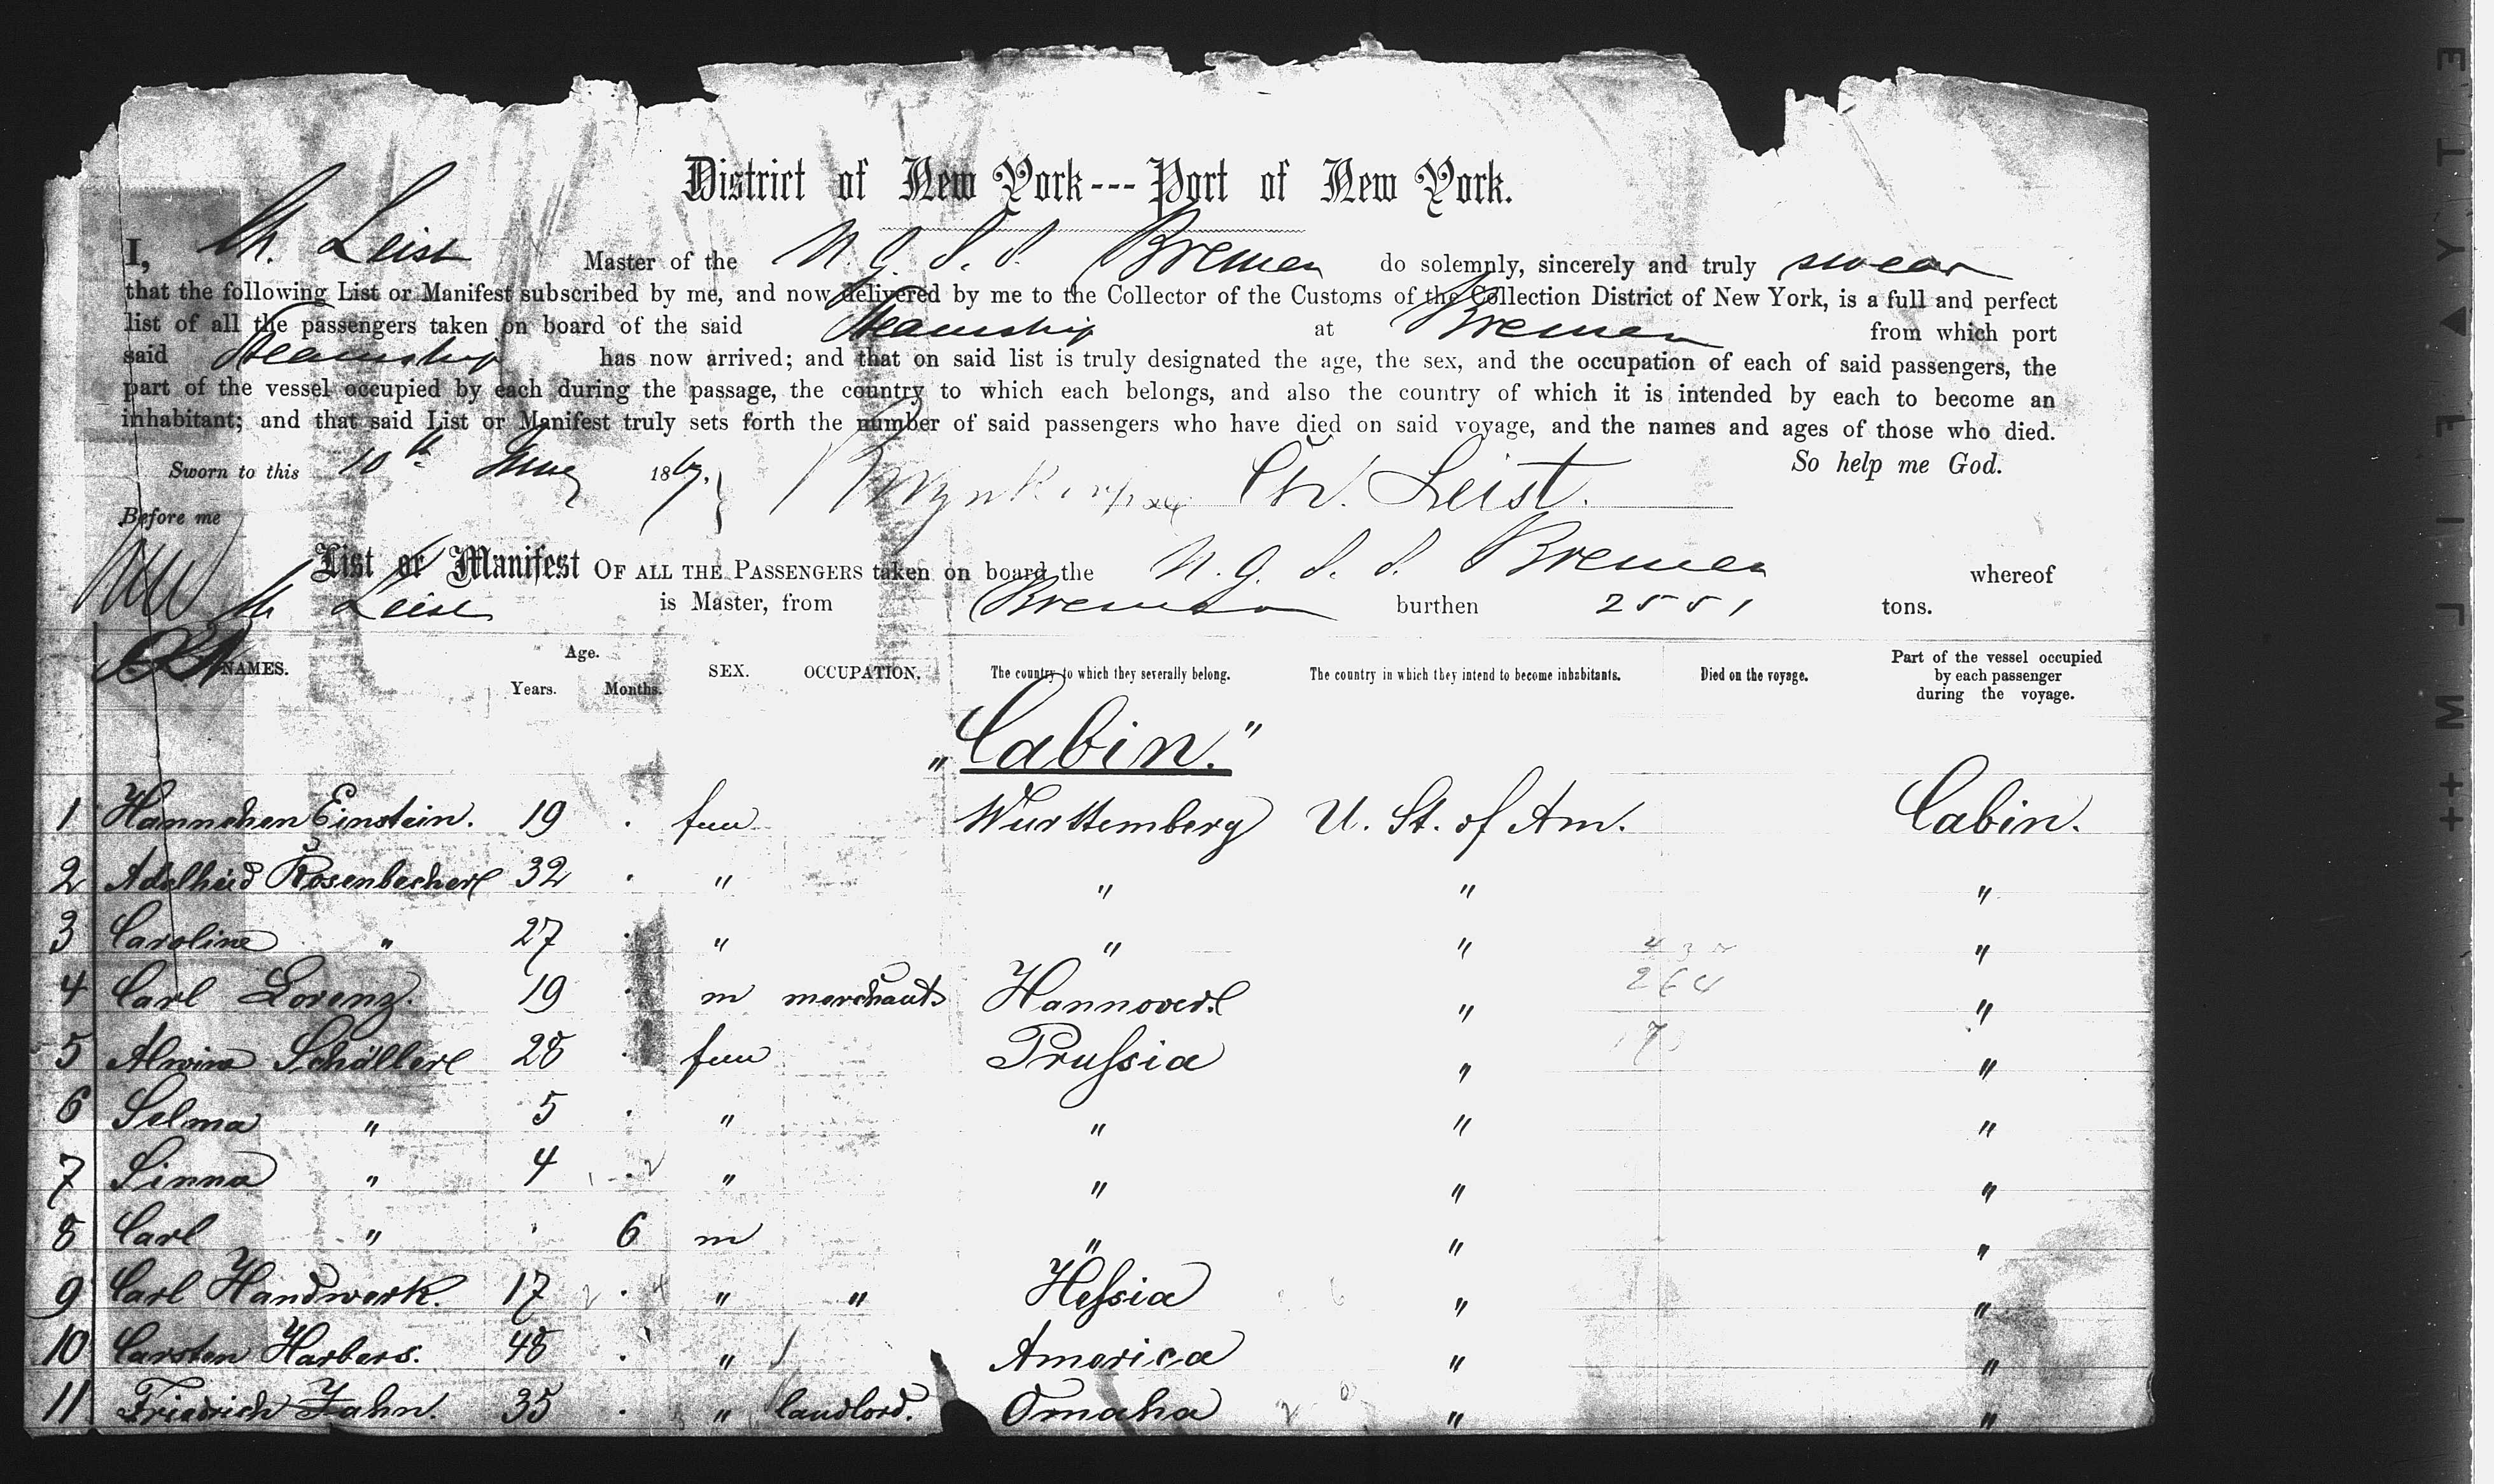 District of New York---Port of New York.
I, Ch. Leist Master of the N. G. S. S. Bremen do solemnly, sincerely and truly swear
that the following List or Manifest subscribed by me, and now delivered by me to the Collector of the Customs of the Collection District of New York, is a full and perfect
list of all the passengers taken on board of the said Steamship at Bremen from which port
said Steamship has now arrived; and that on said list is truly designated the age, the sex, and the occupation of each of said passengers, the
part of the vessel occupied by each during the passage, the country to which each belongs, and also the country of which it is intended by each to become an
inhabitant; and that said List or Manifest truly sets forth the number of said passengers who have died on said voyage, and the names and ages of those who died.
So help me God.
Sworn to this 10th 1867. Ch. Leist.
Before me
List or Manifest OF ALL THE PASSENGERS taken on board the N. G. S. S. Bremen whereof
Ch Leist is Master, from Bremen burthen 2551 tons.
NAMES. Age. Years. Months. SEX. OCCUPATION. The country to which they severally belong. The country in which they intend to become inhabitants. Died on the voyage. Part of the vessel occupied by each passenger during the voyage.
„Cabin."
1 Hannchen Einstein. 19 . fem Wurttemberg U. St. of Am. Cabin.
2 Adelheid Rosenbecher 32 . " " " "
3 Caroline " 27 . " " " "
4 Carl Lorenz. 19 . m merchants Hannover. " "
5 Alwine Schäller 28 . fem Prussia " "
6 Selma " 5 . " " " "
7 Linna " 4 . " " " "
8 Carl " . 6 m " " "
9 Carl Handwerk. 17 . " " Hessia " "
10 Carsten Harbers. 48 . " America " "
11 Friedrich Jahn. 35 . " landlord. Omaha " "